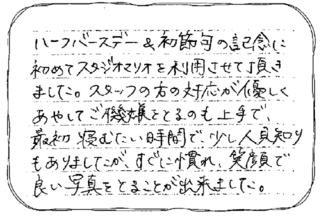 ハーフバースデー&初節句の記念に
初めてスタジオマリオを利用させて頂き
ました。スタッフの方の対応が優しく
あやしてご機嫌をとるのも上手で、
最初寝むたい時間で、少し人見知り
もありましたが、すぐに慣れ、笑顔で
良い写真をとることが出来ました。